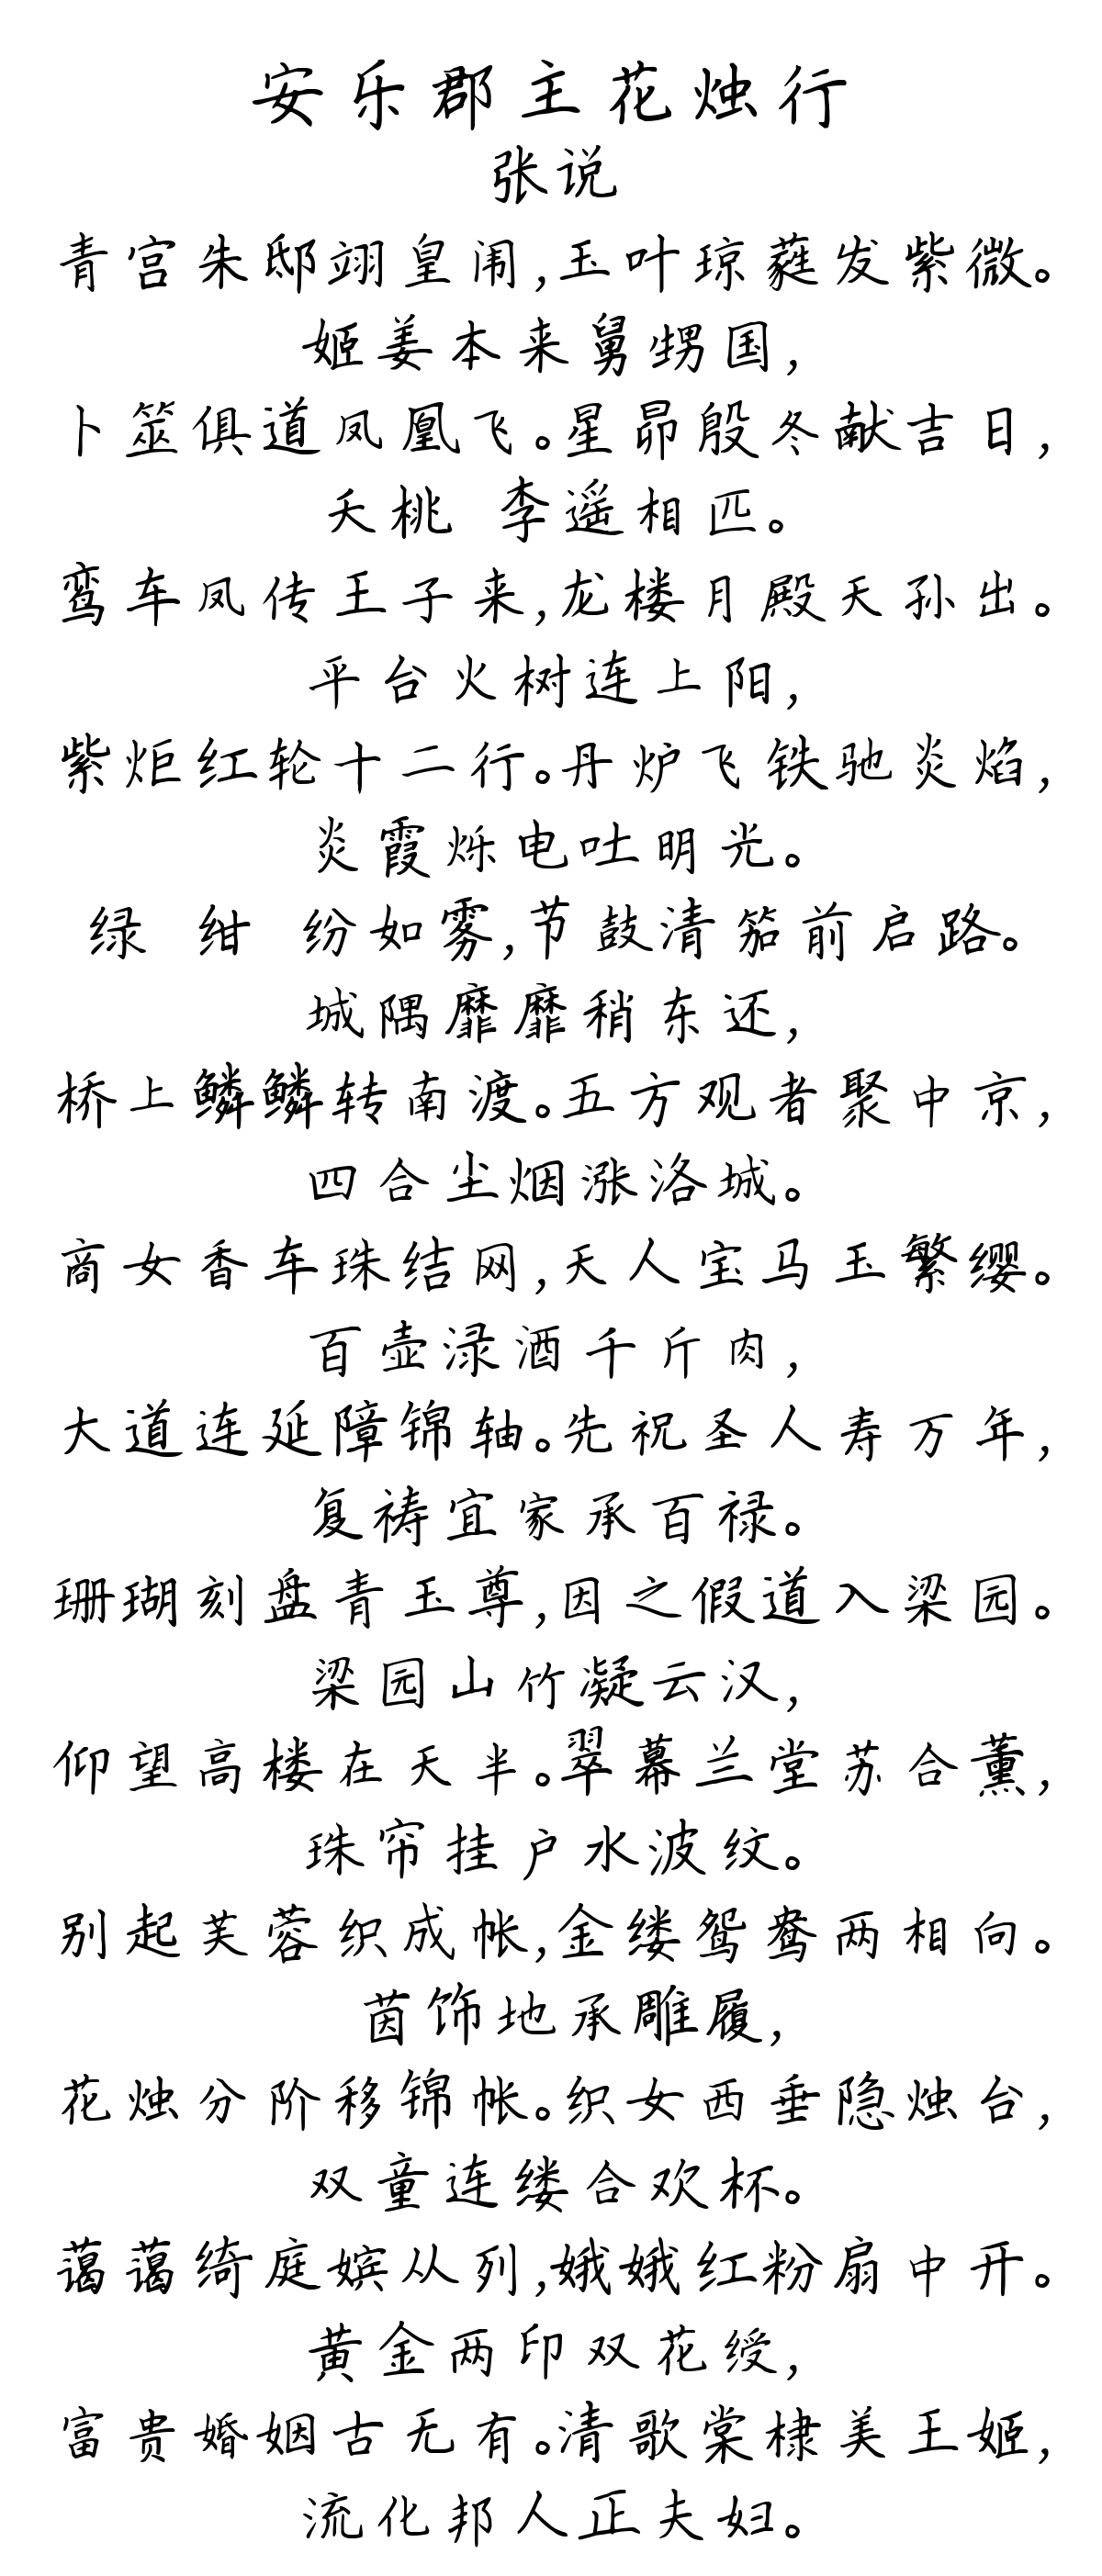 安乐郡主花烛行
张说
青宫朱邸翊皇闱,玉叶琼蕤发紫微。
姬姜本来舅甥国,
卜筮俱道凤凰飞。星昴殷冬献吉日,
夭桃 李遥相匹。
鸾车凤传王子来,龙楼月殿天孙出。
平台火树连上阳,
紫炬红轮十二行。丹炉飞铁驰炎焰,
炎霞烁电吐明光。
绿 绀 纷如雾,节鼓清笳前启路。
城隅靡靡稍东还,
桥上鳞鳞转南渡。五方观者聚中京,
四合尘烟涨洛城。
商女香车珠结网,天人宝马玉繁缨。
百壶渌酒千斤肉,
大道连延障锦轴。先祝圣人寿万年,
复祷宜家承百禄。
珊瑚刻盘青玉尊,因之假道入梁园。
梁园山竹凝云汉,
仰望高楼在天半。翠幕兰堂苏合薰,
珠帘挂户水波纹。
别起芙蓉织成帐,金缕鸳鸯两相向。
茵饰地承雕履,
花烛分阶移锦帐。织女西垂隐烛台,
双童连缕合欢杯。
蔼蔼绮庭嫔从列,娥娥红粉扇中开。
黄金两印双花绶,
富贵婚姻古无有。清歌棠棣美王姬,
流化邦人正夫妇。